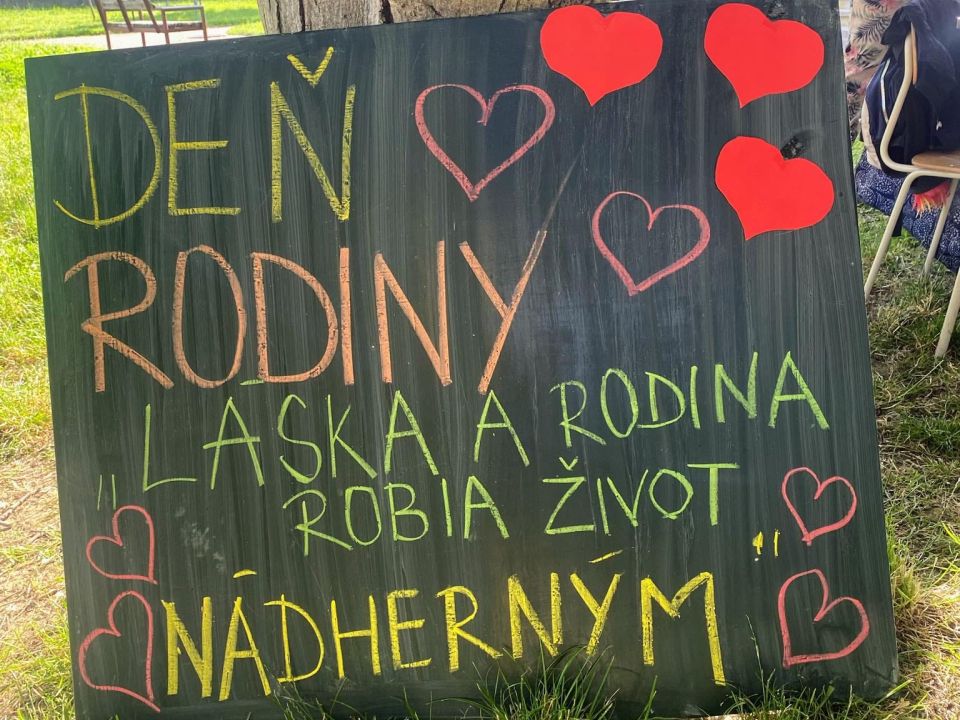 DEŇ
RODINY
„LÁSKA A RODINA
ROBIA ŽIVOT
NÁDHERNÝM"